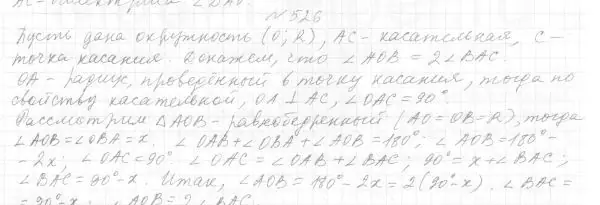 AC - биссектриса ∠ BAD.
№ 526
Пусть дана окружность (O; R), AC - касательная, C -
точка касания. Докажем, что ∠ AOB = 2∠ BAC.
OA - радиус, проведённый в точку касания, тогда по
свойству касательной, OA ⊥ AC, ∠ OAC = 90°.
Рассмотрим △ AOB - равнобедренный (AO = OB = R), тогда
∠ AOB = ∠ OBA = x. ∠ OAB + ∠ OBA + ∠ AOB = 180°; ∠ AOB = 180° -
- 2x; ∠ OAC = 90°. ∠ OAC = ∠ OAB + ∠ BAC; 90° = x + ∠ BAC;
∠ BAC = 90° - x. Итак, ∠ AOB = 180° - 2x = 2(90° - x). ∠ BAC =
= 90° - x. ∠ AOB = 2 ∠ BAC.